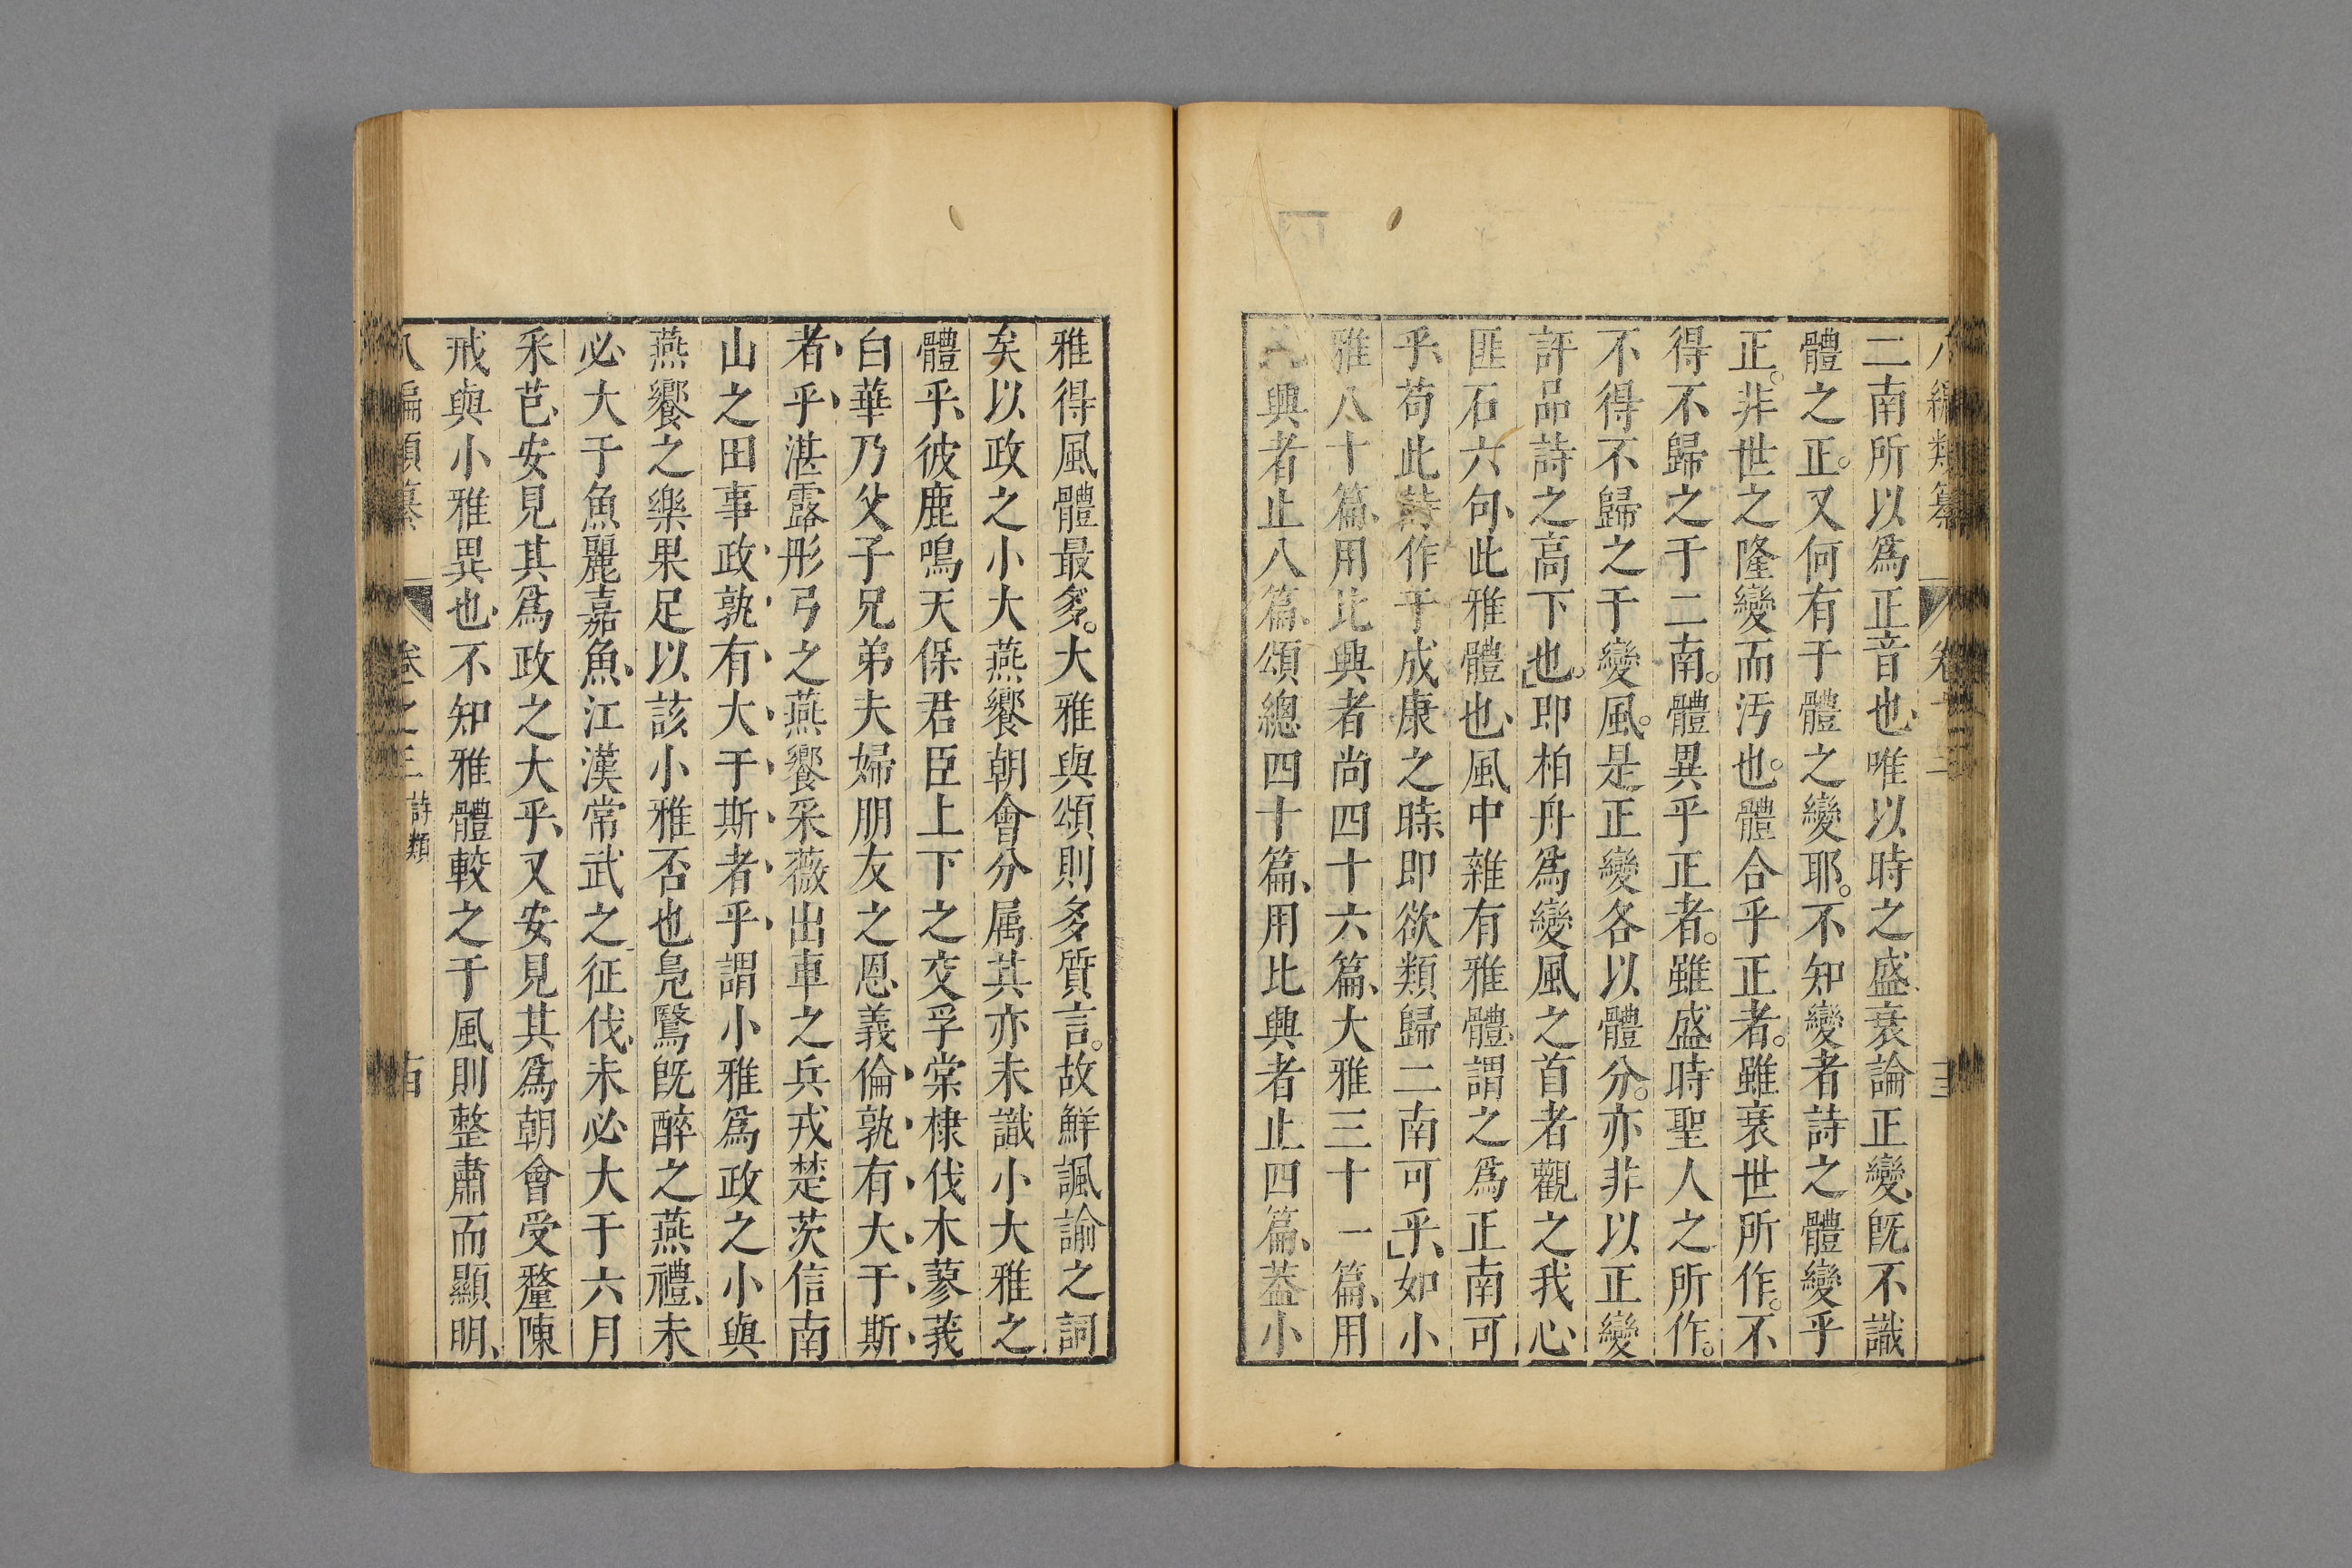 二南所以爲正音也、唯以時之盛衰論正變、旣不識
體之正。又何有于體之變耶。不知變者詩之體變乎
正。非世之隆變而汚也。體合乎正者。雖衰世所作。不
得不歸之于二南。體異乎正者。雖盛時聖人之所作。
不得不歸之于變風。是正變各以體分。亦非以正變
評品詩之高下也。即柏舟爲變風之首者觀之我心
匪石六句、此雅體也、風中雜有雅體、謂之爲正南可
乎、苟此詩作于成康之時、即欲類歸二南可乎、如小
雅八十篇、用比興者尚四十六篇、大雅三十一篇、用
興者止八篇、頌總四十篇、用比興者止四篇、葢小
雅得風體最多。大雅與頌則多質言。故鮮諷諭之詞
矣以政之小大燕饗朝會分属其亦未識小大雅之
體乎、彼鹿鳴天保君臣上下之交孚棠棣伐木蓼莪
白華乃父子兄弟夫婦朋友之恩義倫孰有大于斯
者乎、湛露彤弓之燕饗采薇出車之兵戎楚茨信南
山之田事政孰有大于斯者乎謂小雅爲政之小與
燕饗之樂果足以該小雅否也鳧鷖旣醉之燕禮、未
必大于魚麗嘉魚、江漢常武之征伐、未必大于六月
采芑、安見其爲政之大乎、又安見其爲朝會受釐陳
戒與小雅異也、不知雅體較之于風則整肅而顯明、
八編類纂 卷之三 詩類 十四